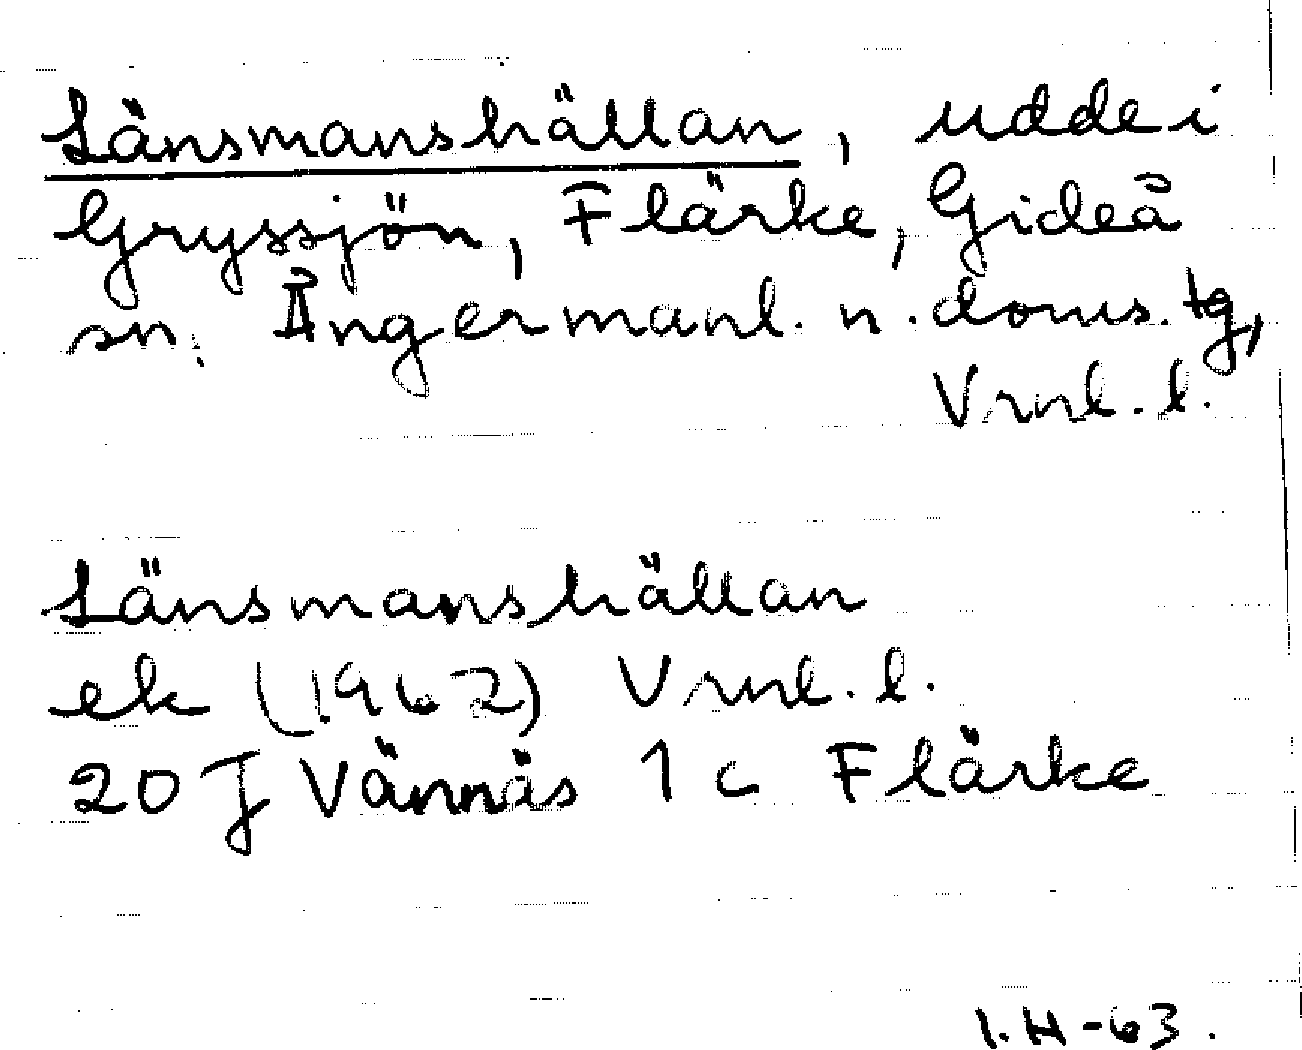 Länsmanshällan, udde i
Gryssjön, Flärke, Gideå
sn. Ångermanl. n. doms. tg,
Vrnl. l.
Länsmanshällan
ek (1962) Vrnl. l.
20 J Vännäs 1 c Flärke
I. H-63.